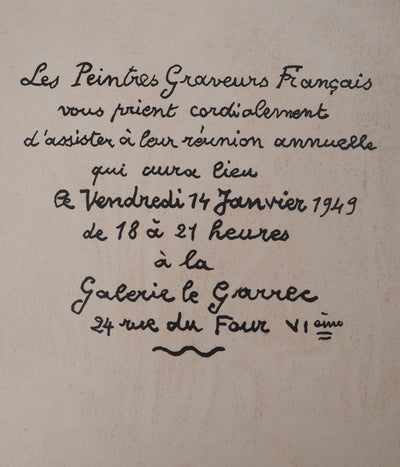 Les Peintres Graveurs Français
vous prient cordialement
d'assister à leur réunion annuelle
qui aura lieu
le Vendredi 14 Janvier 1949
de 18 à 21 heures
à la
Galerie le Garrec
24 rue du Four VIème